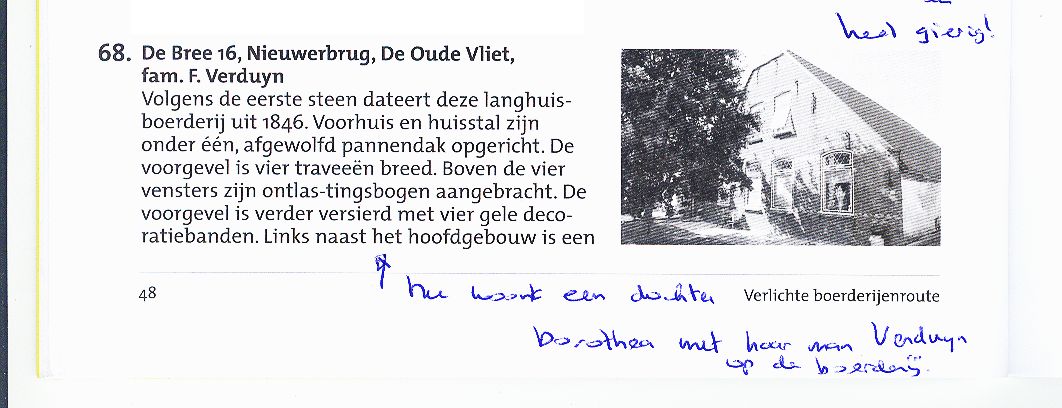 heel gierig!
68. De Bree 16, Nieuwerbrug, De Oude Vliet,
fam. F. Verduyn
Volgens de eerste steen dateert deze langhuis-
boerderij uit 1846. Voorhuis en huisstal zijn
onder één, afgewolfd pannendak opgericht. De
voorgevel is vier traveeën breed. Boven de vier
vensters zijn ontlas-tingsbogen aangebracht. De
voorgevel is verder versierd met vier gele deco-
ratiebanden. Links naast het hoofdgebouw is een
Nu woont een dochter
48 Verlichte boerderijenroute
Dorothea met haar man Verduyn
op de boerderij.